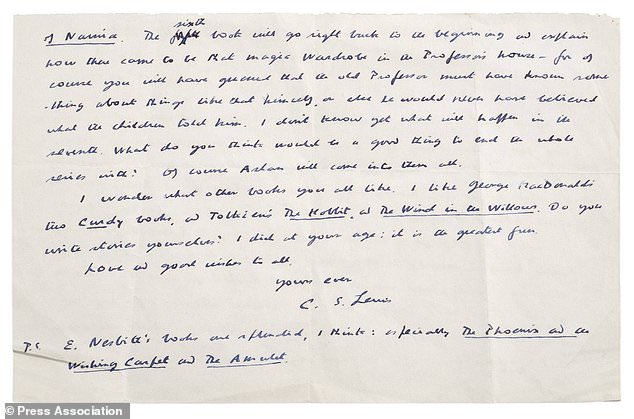 of Narnia. The sixth book will go right back to the beginning and explain
how there came to be that magic Wardrobe in the Professor's house - for of
course you will have guessed that the old Professor must have known some
-thing about things like that himself, or else he would never have believed
what the children told him. I don't know yet what will happen in the
seventh. What do you think would be a good thing to end the whole
series with? Of course Aslan will come into them all.
I wonder what other books you all like. I like George MacDonald's
two Curdy books, and Tolkien's The Hobbit, and The Wind in the Willows. Do you
write stories yourselves? I did at your age: it is the greatest fun.
Love and good wishes to all.
yours ever
C. S. Lewis
P.S. E. Nesbitt's books are splendid, I think: especially The Phoenix and the
Wishing Carpet and The Amulet.
© Press Association